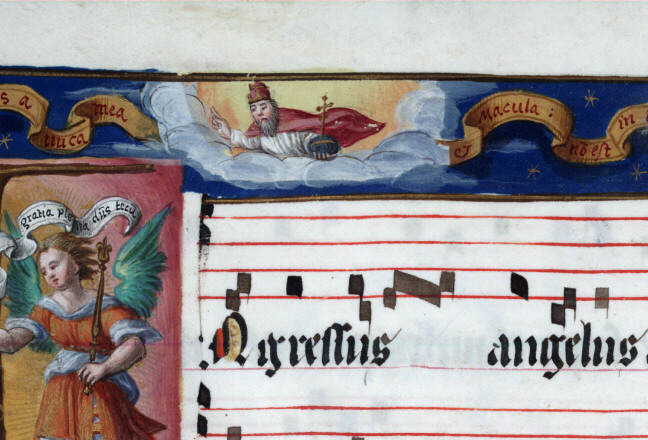 s a mica mea & Macula : nō est in
gratia ple na dn̄s tecū
Ngressus angelus